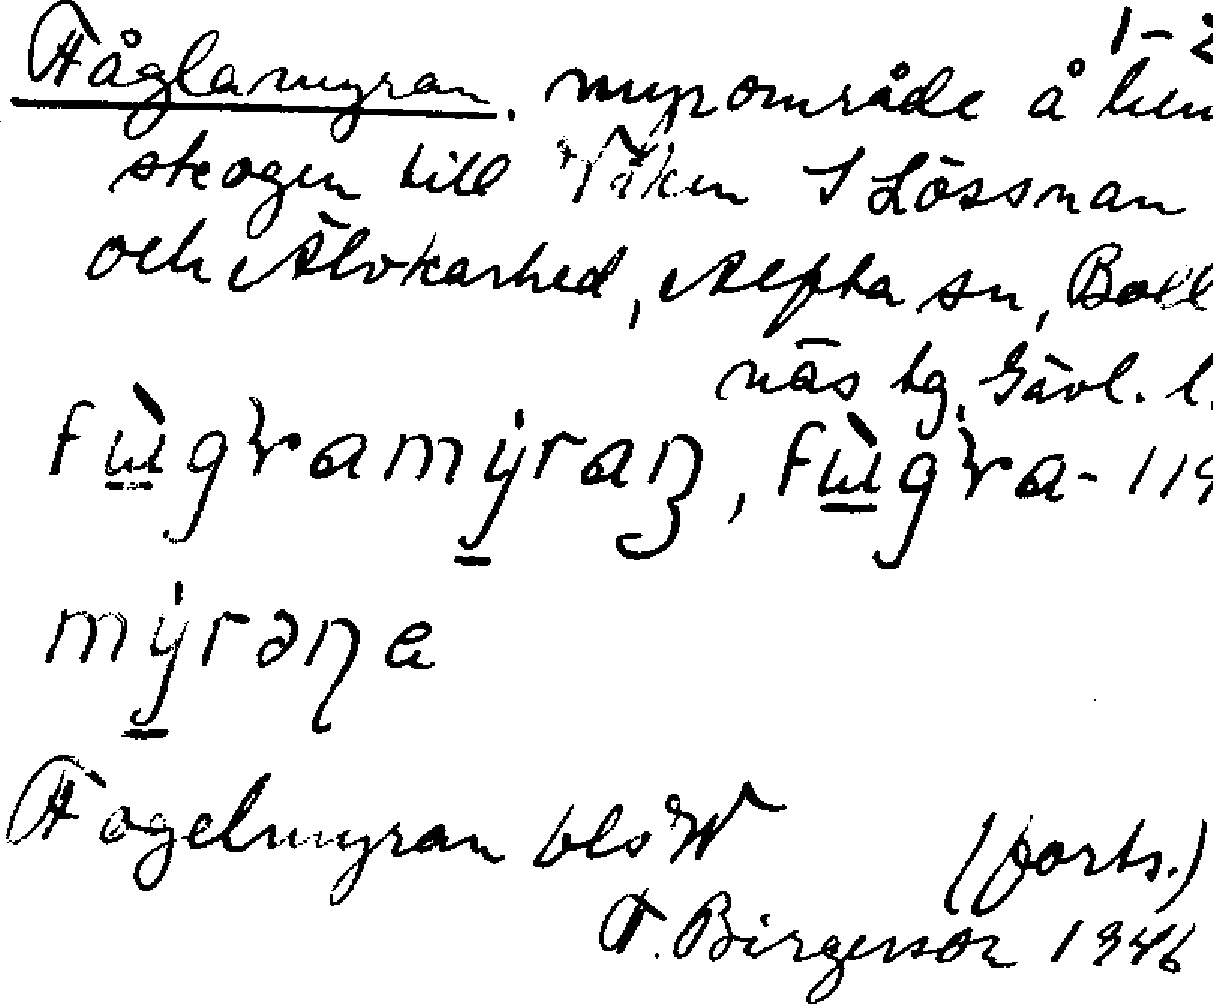 1-2
Fåglamyran. myrområde å hem
skogen till Viken S Lössnan
och Älvkarhed, Alfta sn, Boll
näs tg, Gävl. l.
fɯ̀gɽamýraɳ, fɯ̀gɽa-
mýrəɳa
Fogelmyran bls W (forts.)
T. Birgerson 1946